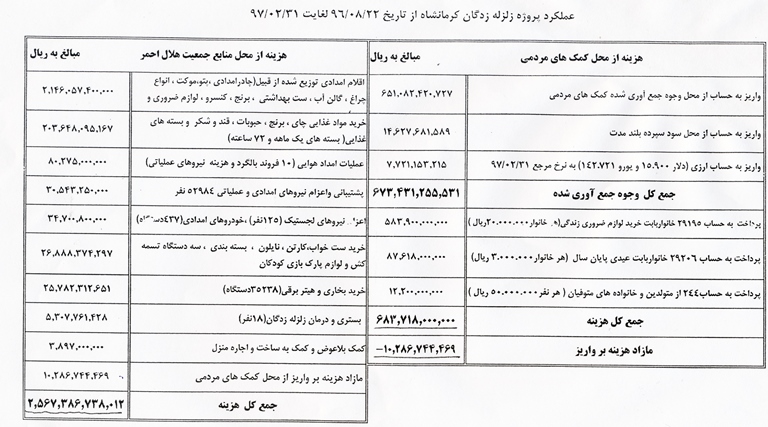 عملکرد پروژه زلزله زدگان کرمانشاه از تاریخ ۹۶/۰۸/۲۲ لغایت ۹۷/۰۲/۳۱
هزینه از محل کمک های مردمی
مبالغ به ریال
واریز به حساب از محل وجوه جمع آوری شده کمک های مردمی
۶۵۱,۰۸۲,۴۲۰,۷۲۷
واریز به حساب از محل سود سپرده بلند مدت
۱۴,۶۲۷,۶۸۱,۵۸۹
واریز به حساب ارزی (دلار ۱۵,۹۰۰ و یورو ۱۴۲,۷۲۱) به نرخ مرجع ۹۷/۰۲/۳۱
۷,۷۲۱,۱۵۳,۲۱۵
جمع کل وجوه جمع آوری شده
۶۷۳,۴۳۱,۲۵۵,۵۳۱
پرداخت به حساب ۲۹۱۹۵ خانواربابت خرید لوازم ضروری زندگی( خانوار۲۰,۰۰۰,۰۰۰ریال )
۵۸۳,۹۰۰,۰۰۰,۰۰۰
پرداخت به حساب ۲۹۲۰۶ خانواربابت عیدی پایان سال (هر خانوار۳,۰۰۰,۰۰۰ ریال)
۸۷,۶۱۸,۰۰۰,۰۰۰
پرداخت به حساب۲۴۴ از متولدین و خانواده های متوفیان ( هر نفر۵۰,۰۰۰,۰۰۰ ریال )
۱۲,۲۰۰,۰۰۰,۰۰۰
جمع کل هزینه
۶۸۳,۷۱۸,۰۰۰,۰۰۰
مازاد هزینه بر واریز
-۱۰,۲۸۶,۷۴۴,۴۶۹
هزینه از محل منابع جمعیت هلال احمر
مبالغ به ریال
اقلام امدادی توزیع شده از قبیل(چادرامدادی ،پتو،موکت ، انواع
چراغ ، گالن آب ، ست بهداشتی ، برنج ، کنسرو ، لوازم ضروری و
۲,۱۴۶,۰۵۷,۴۰۰,۰۰۰
خرید مواد غذایی چای ، برنج ، حبوبات ، قند و شکر و بسته های
غذایی( بسته های یک ماهه و ۷۲ ساعته)
۲۰۳,۶۴۸,۰۹۵,۱۶۷
عملیات امداد هوایی (۱۰ فروند بالگرد و هزینه نیروهای عملیاتی)
۸۰,۲۷۵,۰۰۰,۰۰۰
پشتیبانی واعزام نیروهای امدادی و عملیاتی ۵۲۹۸۴ نفر
۳۰,۵۴۳,۲۵۰,۰۰۰
نیروهای لجستیک (۱۲۵نفر) ،خودروهای امدادی(۴۳۷
۳۴,۷۰۰,۸۰۰,۰۰۰
خرید ست خواب،کارتن ، نایلون ، بسته بندی ، سه دستگاه تسمه
کش و لوازم پارک بازی کودکان
۲۶,۸۸۸,۳۷۴,۲۹۷
خرید بخاری و هیتر برقی(۳۵۲۳۸دستگاه)
۲۵,۷۸۲,۳۱۲,۶۵۱
بستری و درمان زلزله زدگان(۱۸نفر)
۵,۳۰۷,۷۶۱,۴۲۸
کمک بلاعوض و کمک به ساخت و اجاره منزل
۳,۸۹۷,۰۰۰,۰۰۰
مازاد هزینه بر واریز از محل کمک های مردمی
۱۰,۲۸۶,۷۴۴,۴۶۹
جمع کل هزینه
۲,۵۶۷,۳۸۶,۷۳۸,۰۱۲